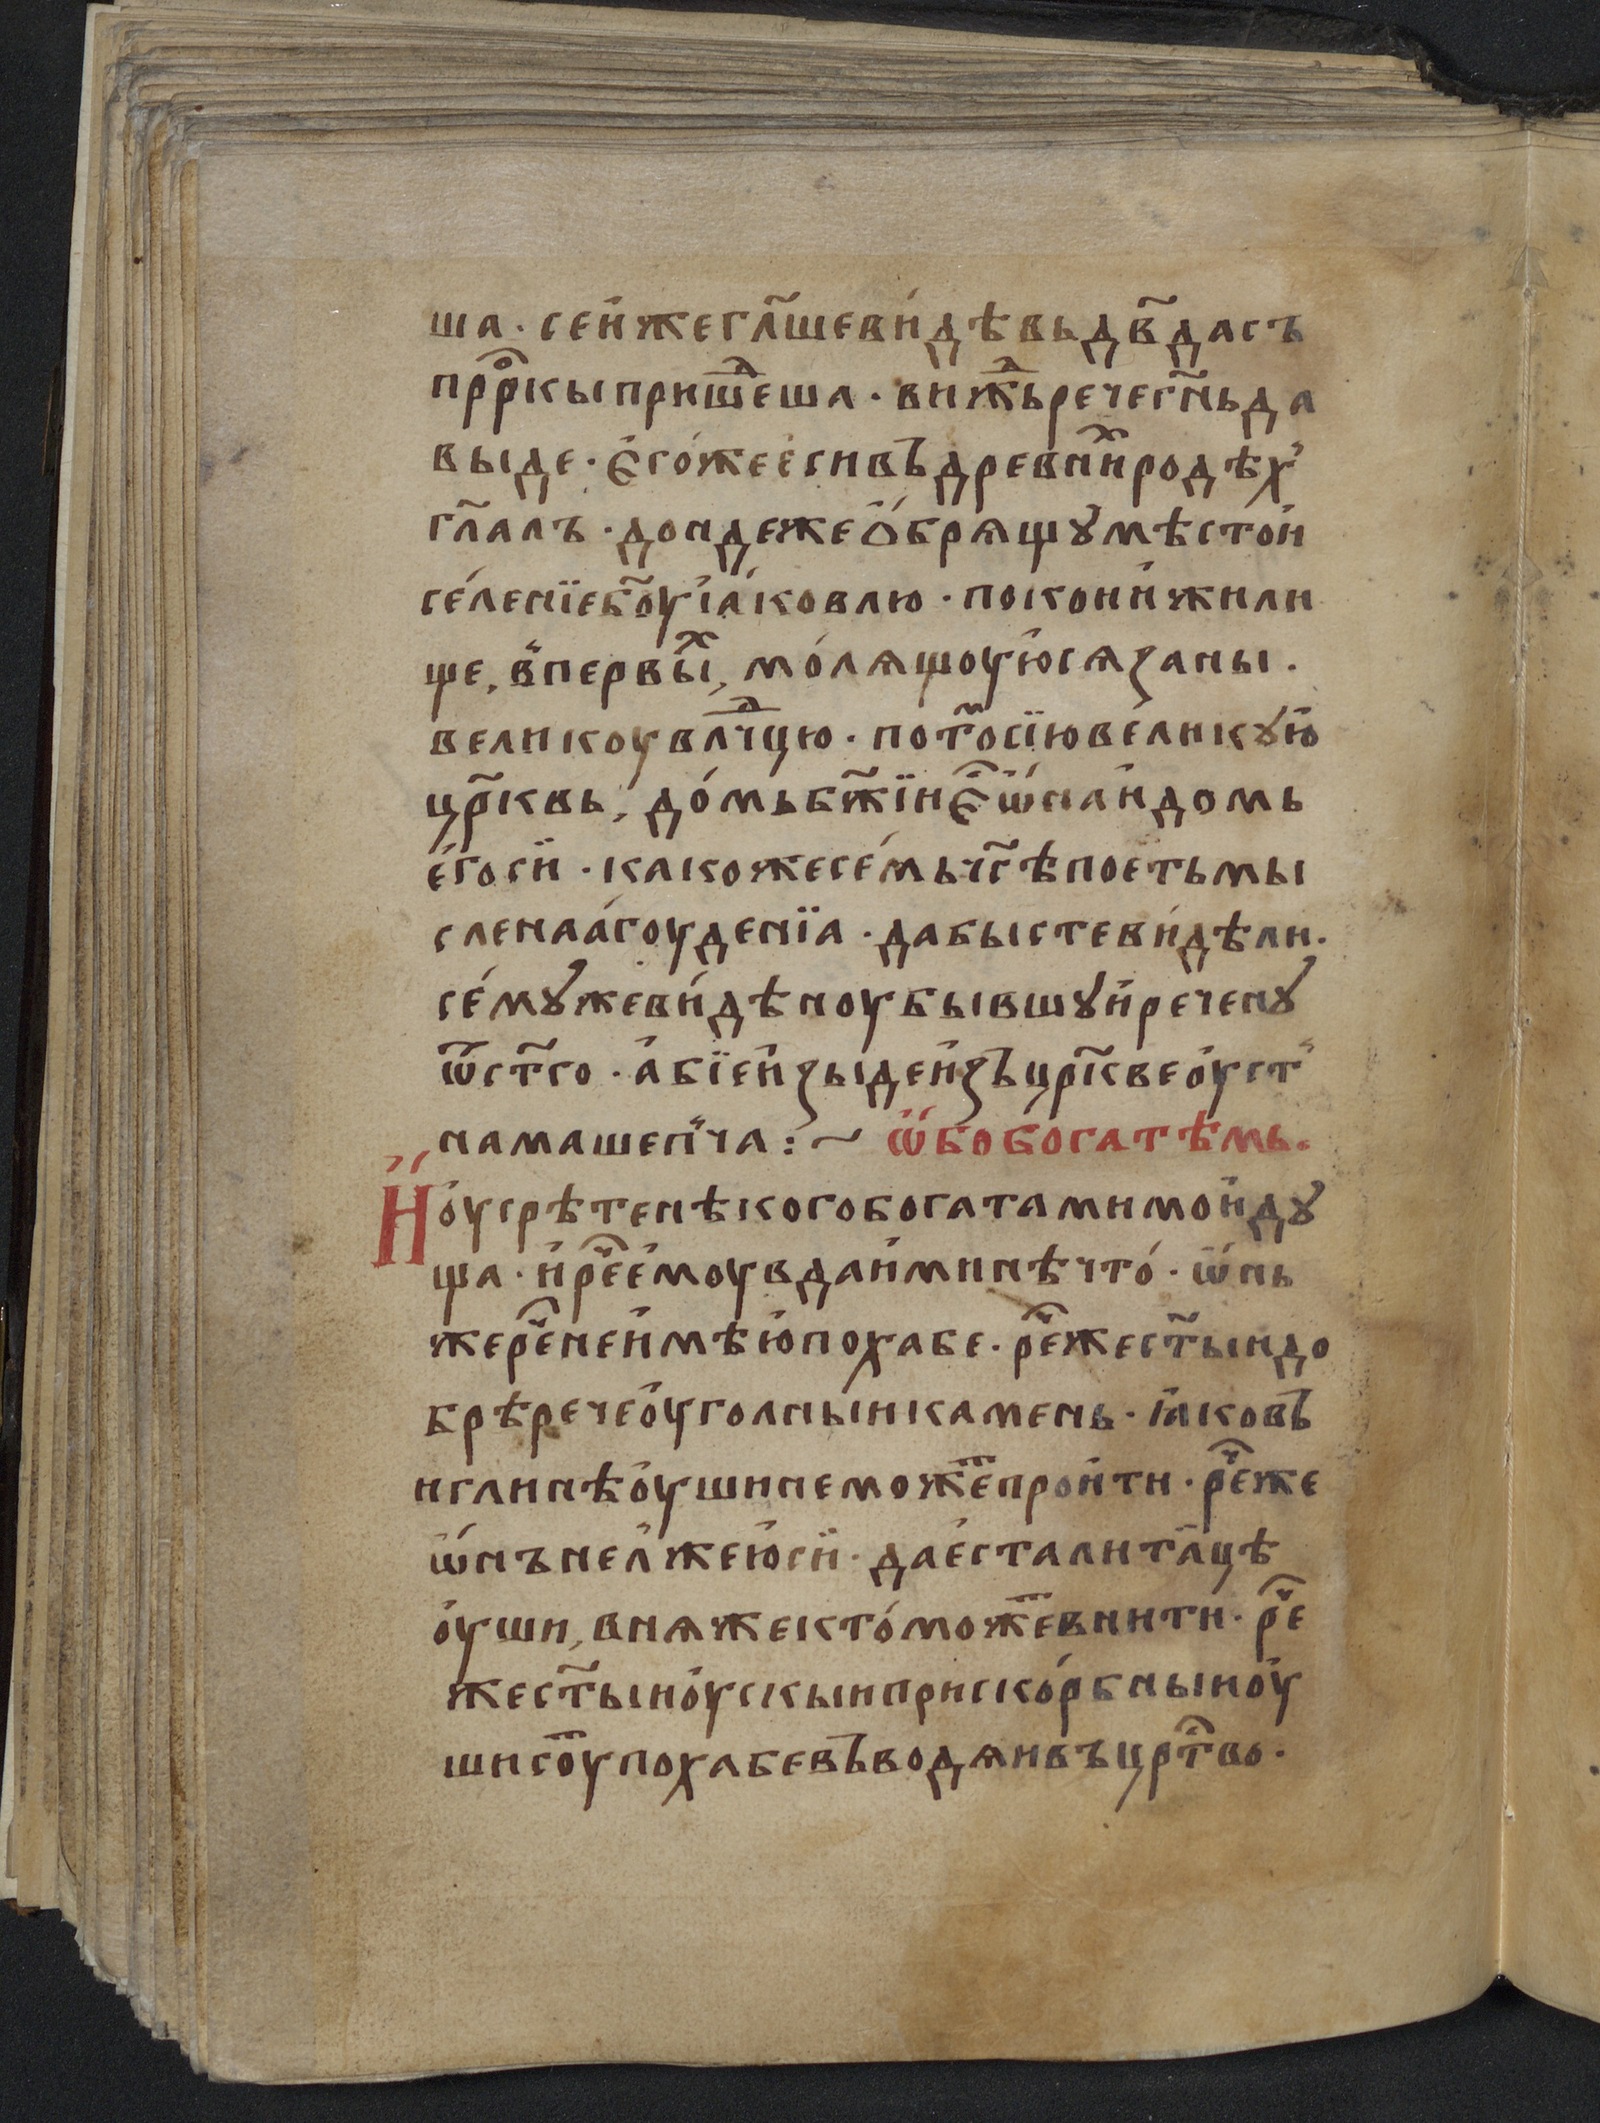 ша · сеи́жегл҃шеви́дѣвьдв҃дасъ
прⷪ҇ркыпришеⷣша · вижⷣьречегн҃ьда
выде · є҆го́жее҆сивъдревнниⷯродѣх҆
гл҃алъ · дондежеѻ҆́брѧщꙋмѣстои҆
се́ленїебо҃уі҆а́ковлю · покои́жили
ще, в̾первы́иⷯ, мо́лѧщоую҆сѧзаны ·
великоувлⷣчцю · пот҃осїювели́кꙋю҆
цр҃квь, до́мьбж҃їиє҆ⷭ҇ѡ҆́наи҆домь
е҆́госи҆ · какожесе́мьчс҃ѣпоетьмы
сленаа́гоуденїа · дабыстеви́дѣли ·
се́мꙋжеви́дѣноубывшꙋи҆реченꙋ
ѿст҃го · а҆бїеи҆зыдеи҆зъцр҃квео҆уст̾
намашеп̾ча : ~ ѡ҆́бобо́гатѣмь ·
И҆о҆усрѣтенѣкогобогатамимои҆дꙋ
ща · и҆реⷱ҇е҆моувдаи҆минѣчто́ · ѡ҆́нь
жереⷱ҇неи҆мѣю҆похабе · реⷱ҇жест҃ыидо
брѣречео҆уголныикамень · і҆аковъ
иглинѣо҆ушинеможеⷮпрои҆ти · реⷱ҇же
ѡ҆́нънел҆жею҆си҆ · дае҆сталита́цѣ
о҆уши, внѧжекто́можеⷮвнити · реⷱ҇
жест҃ыио҆ускыиприско́рбныио҆у
шисоⷮупохабевъводѧивъцрⷭ҇тво ·